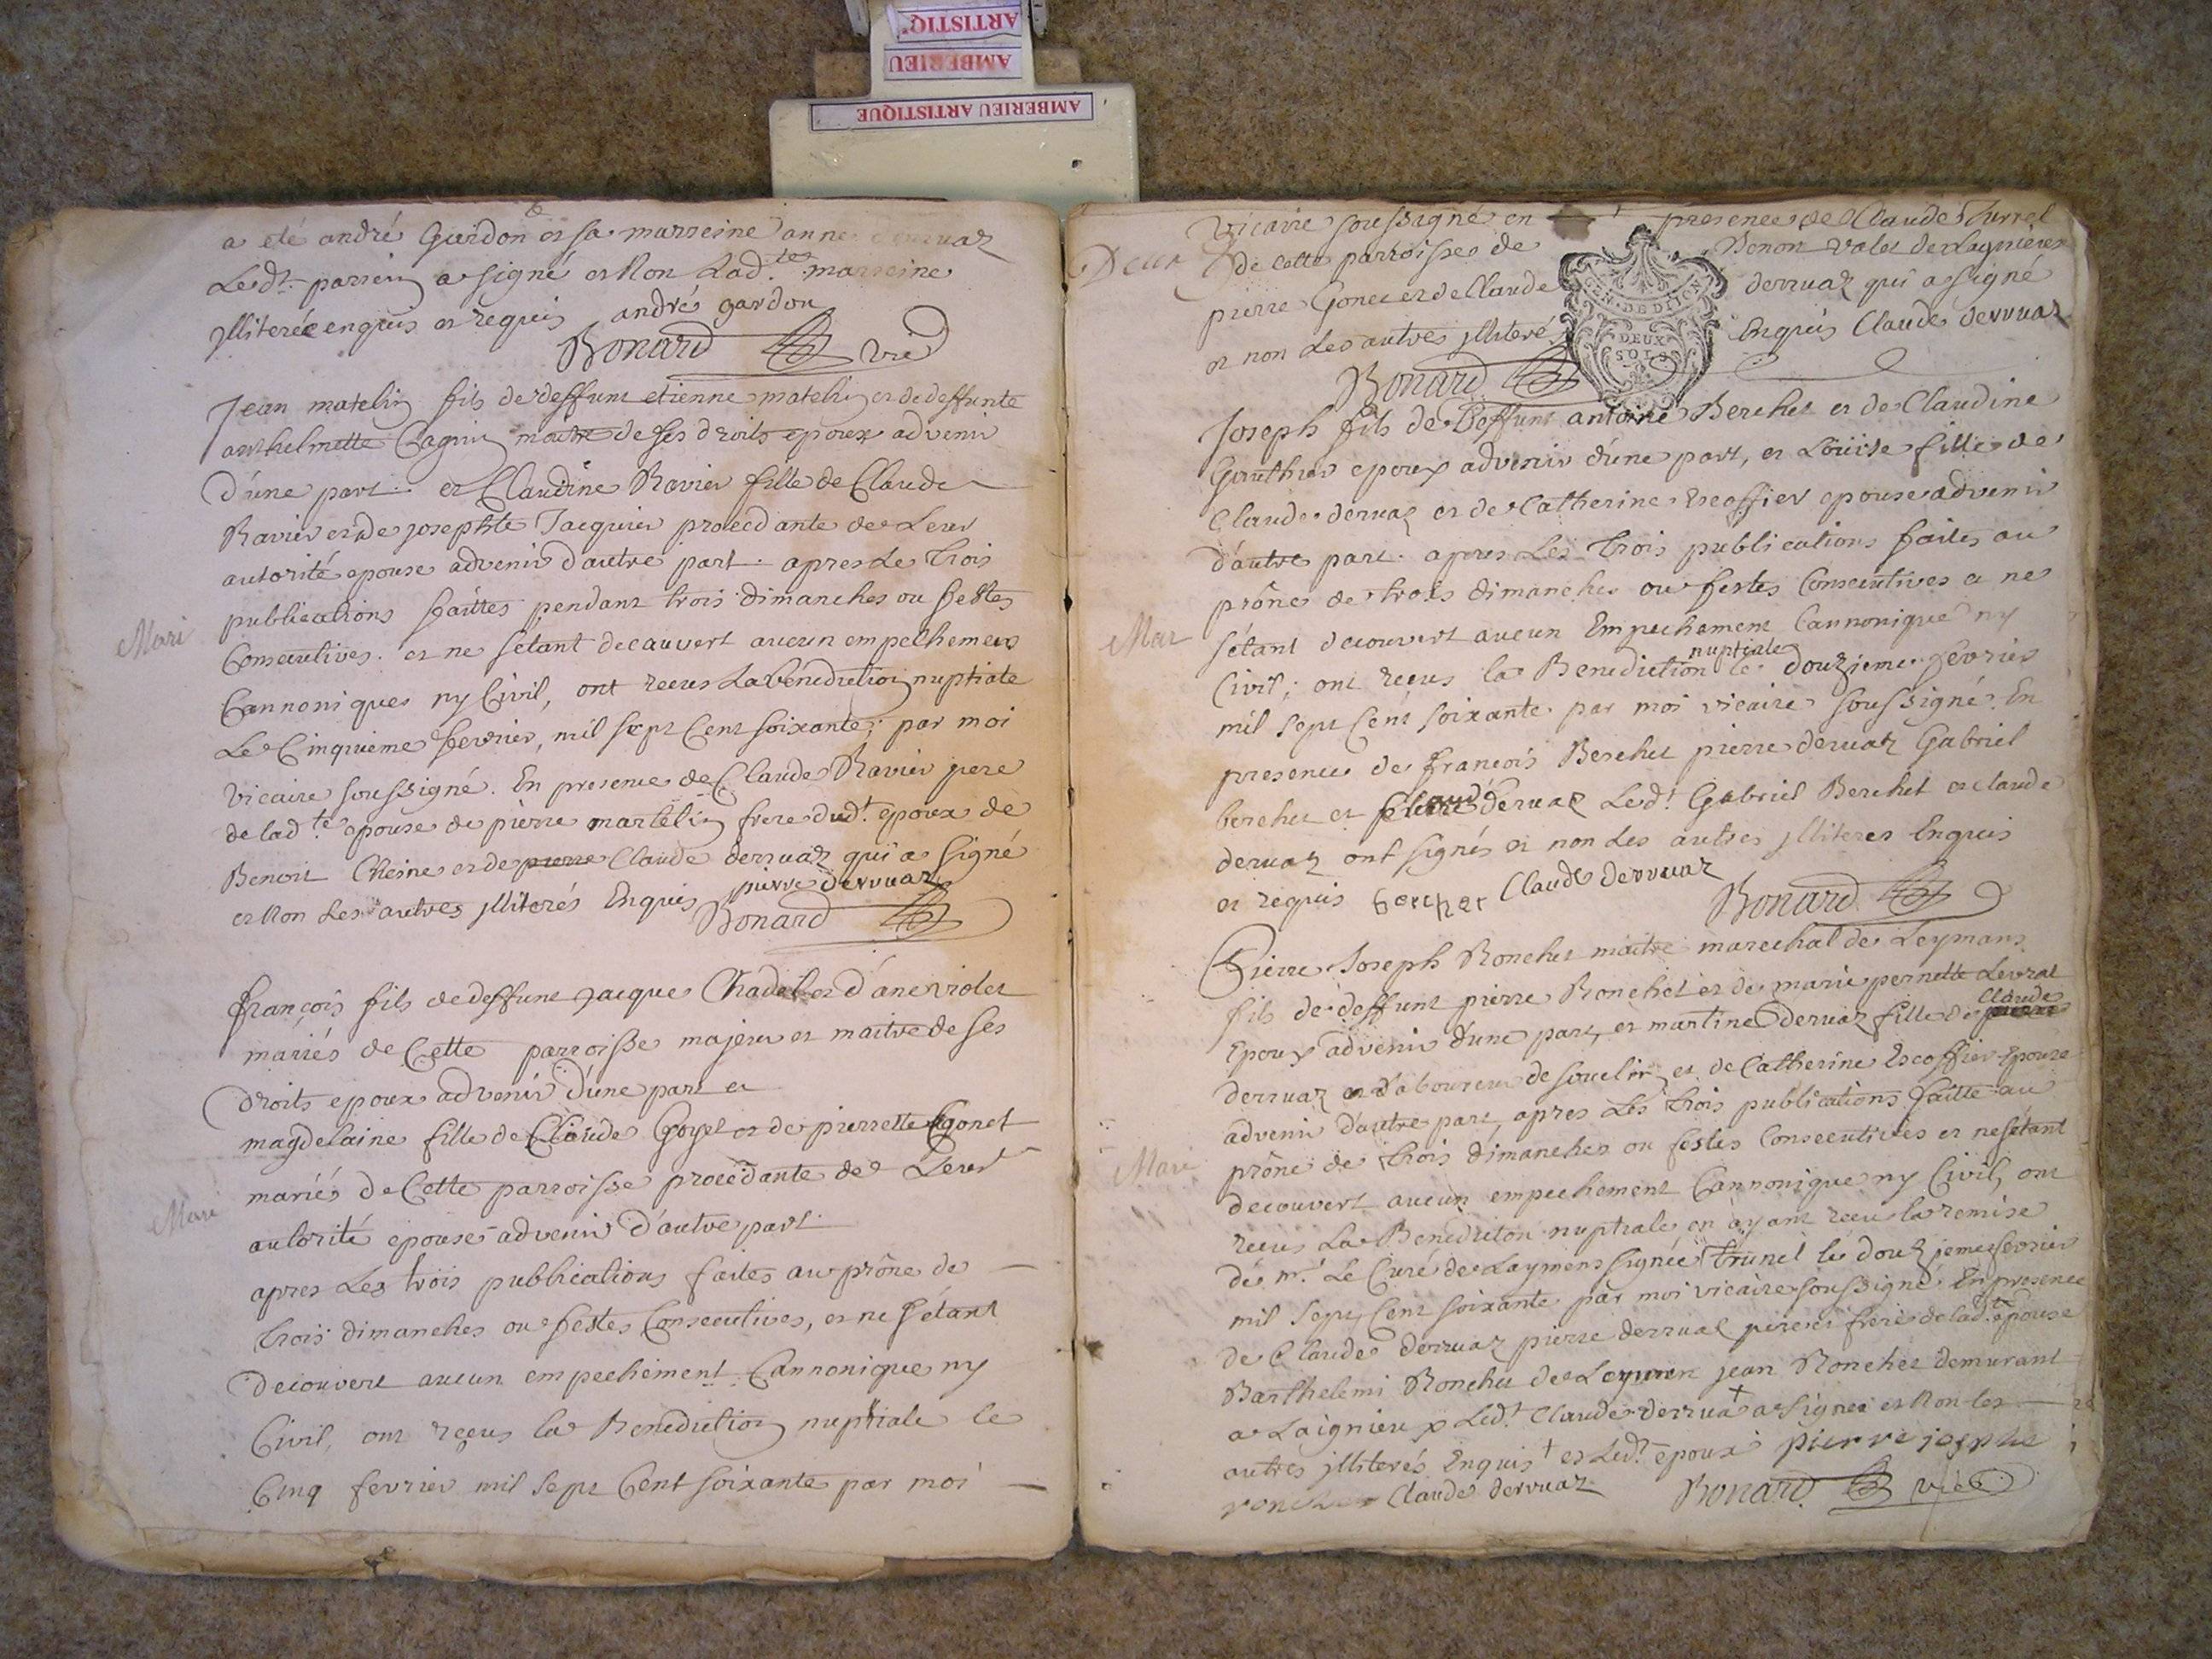 ARTISTIQ
AMBERIEU
AMBERIEU ARTISTIQUE
a eté andré Gardon et sa marreine anne derruaz
Ledt. parrein a signé et Non Lad.te marreine
jlliterée enquis et requis andré gardon
Bonard vre
Jean matelin fils de deffunt etienne matelin et de deffunte
anthelmette Cagnin maitre de ses droits epoux advenir
d'une part. et Claudine Ravier fille de Claude
Ravier et de josephte Jacquier procedante de Leur
autorité epouse advenir d'autre part. apres Le trois
publications faittes pendant trois dimanches ou festes
Mari
Consecutives. et ne s'étant decauvert aucun empeshemens
Cannoniques ny Civil, ont recus La bénédiction nuptiale
Le Cinquieme fevrier, mil sept Cent soixante; par moi
vicaire soussigné. En presence de Claude Ravier pere
de lad.te epouse de pierre martelin frere dud.t epoux de
Benoit Cheine et de pierre Claude derruaz qui a signé
et Non Les autres jlliterés Enquis pierre dervuaz
Bonard
françois fils de deffunt jacque Chadel et d'ane violet
mariés de Cette parroisse majeur et maitre de ses
droits epoux advenir d'une part et
magdelaine fille de Claude Goyet et de pierrette Gonet
mariés de Cette parroisse procedante de Leur
Mari
autorité epouse advenir d'autre part.
apres Les trois publications faites au prône de
trois dimanches ou festes Consecutives, et ne s'étant
decouvert aucun empechement Cannonique ny
Civil, ont reçus la Benediction nuptiale le
Cinq fevrier mil sept Cent soixante par moi
vicaire soussigné en presence de Claude Turrel
Deux
de cette parroisse de Benoit valet de Lagnieux
pierre Gonet et de Claude derruaz qui a signé
GEN. DE DIJON
DEUX
SOLS
et non Les autres jlliteré Enquis Claude dervuaz
Bonard
Joseph fils de Deffunt antoine Berchet et de Claudine
Gauthier epoux advenir d'une part, et Loüise fille de
Claude deruaz et de Catherine Escoffier epouse advenir
d'autre part. apres Les trois publications faites au
prône de trois dimanches ou festes Consecutives et ne
Mar
s'étant decouvert aucun Empechement Cannonique ny
nuptiale
Civil; ont reçus la Benediction le douzieme fevrier
mil sept Cent soixante par moi vicaire soussigné. En
presence de françois Berchet pierre deruaz Gabriel
berchet et Claude deruaz Led.t Gabriel Berchet et claude
deruaz ont signés et non Les autres jlliteres Enquis
et requis bercher Claude dervuaz
Bonard
Pierre Joseph Ronchet maitre marechal de Leymans
fils de deffunt pierre Ronchet et de marie pernette Levrat
Claude
Epoux advenir d'une part, et martine Deruaz fille de pierre
derruaz et Laboureur de souclin et de Catherine Escoffier Epouse
advenir d'autre part, apres Les trois publications faitte au
Mari
prône de trois dimanches ou festes Consecutives et ne s'étant
decouvert aucun empechement Cannonique ny Civil, ont
recus La Benediction nuptiale en ayant recu la remise
de mr. Le Curé de Laymens signée Trunel le douzieme fevrier
mil sept Cent soixante par moi vicaire soussigné En presence
de Claude derruaz pierre derruaz pere et frere de lad.te epouse
Barthelemi Ronchet de Leymen jean Ronchet demurant
a Laignieux Led.t Claude derruaz + a signé et Non les
autres jlliterés Enquis + et Led.t epoux pierre josphe
ronchet Claude dervuaz Bonard vic